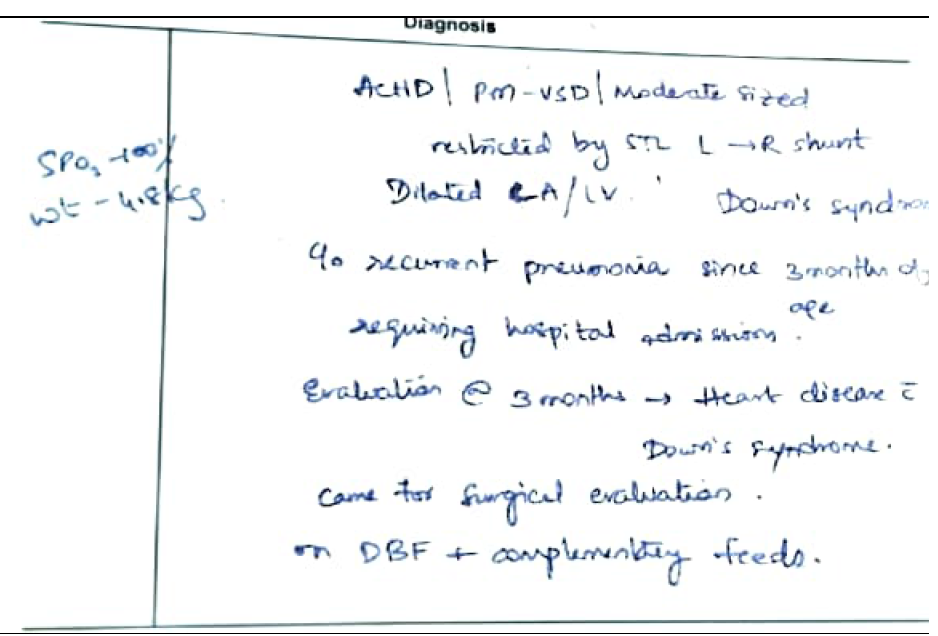 Diagnosis
ACHD | PM-VSD | Moderate sized
restricted by STL L → R shunt
SPO2 -100%
Dilated LA/LV.
wt - 4.8kg.
Down's syndro
c/o recurrent pneumonia since 3 months of
age
requiring hospital admissions.
Evaluation @ 3 months → Heart disease c̄
Down's syndrome.
Came for surgical evaluation.
on DBF + complementary feeds.